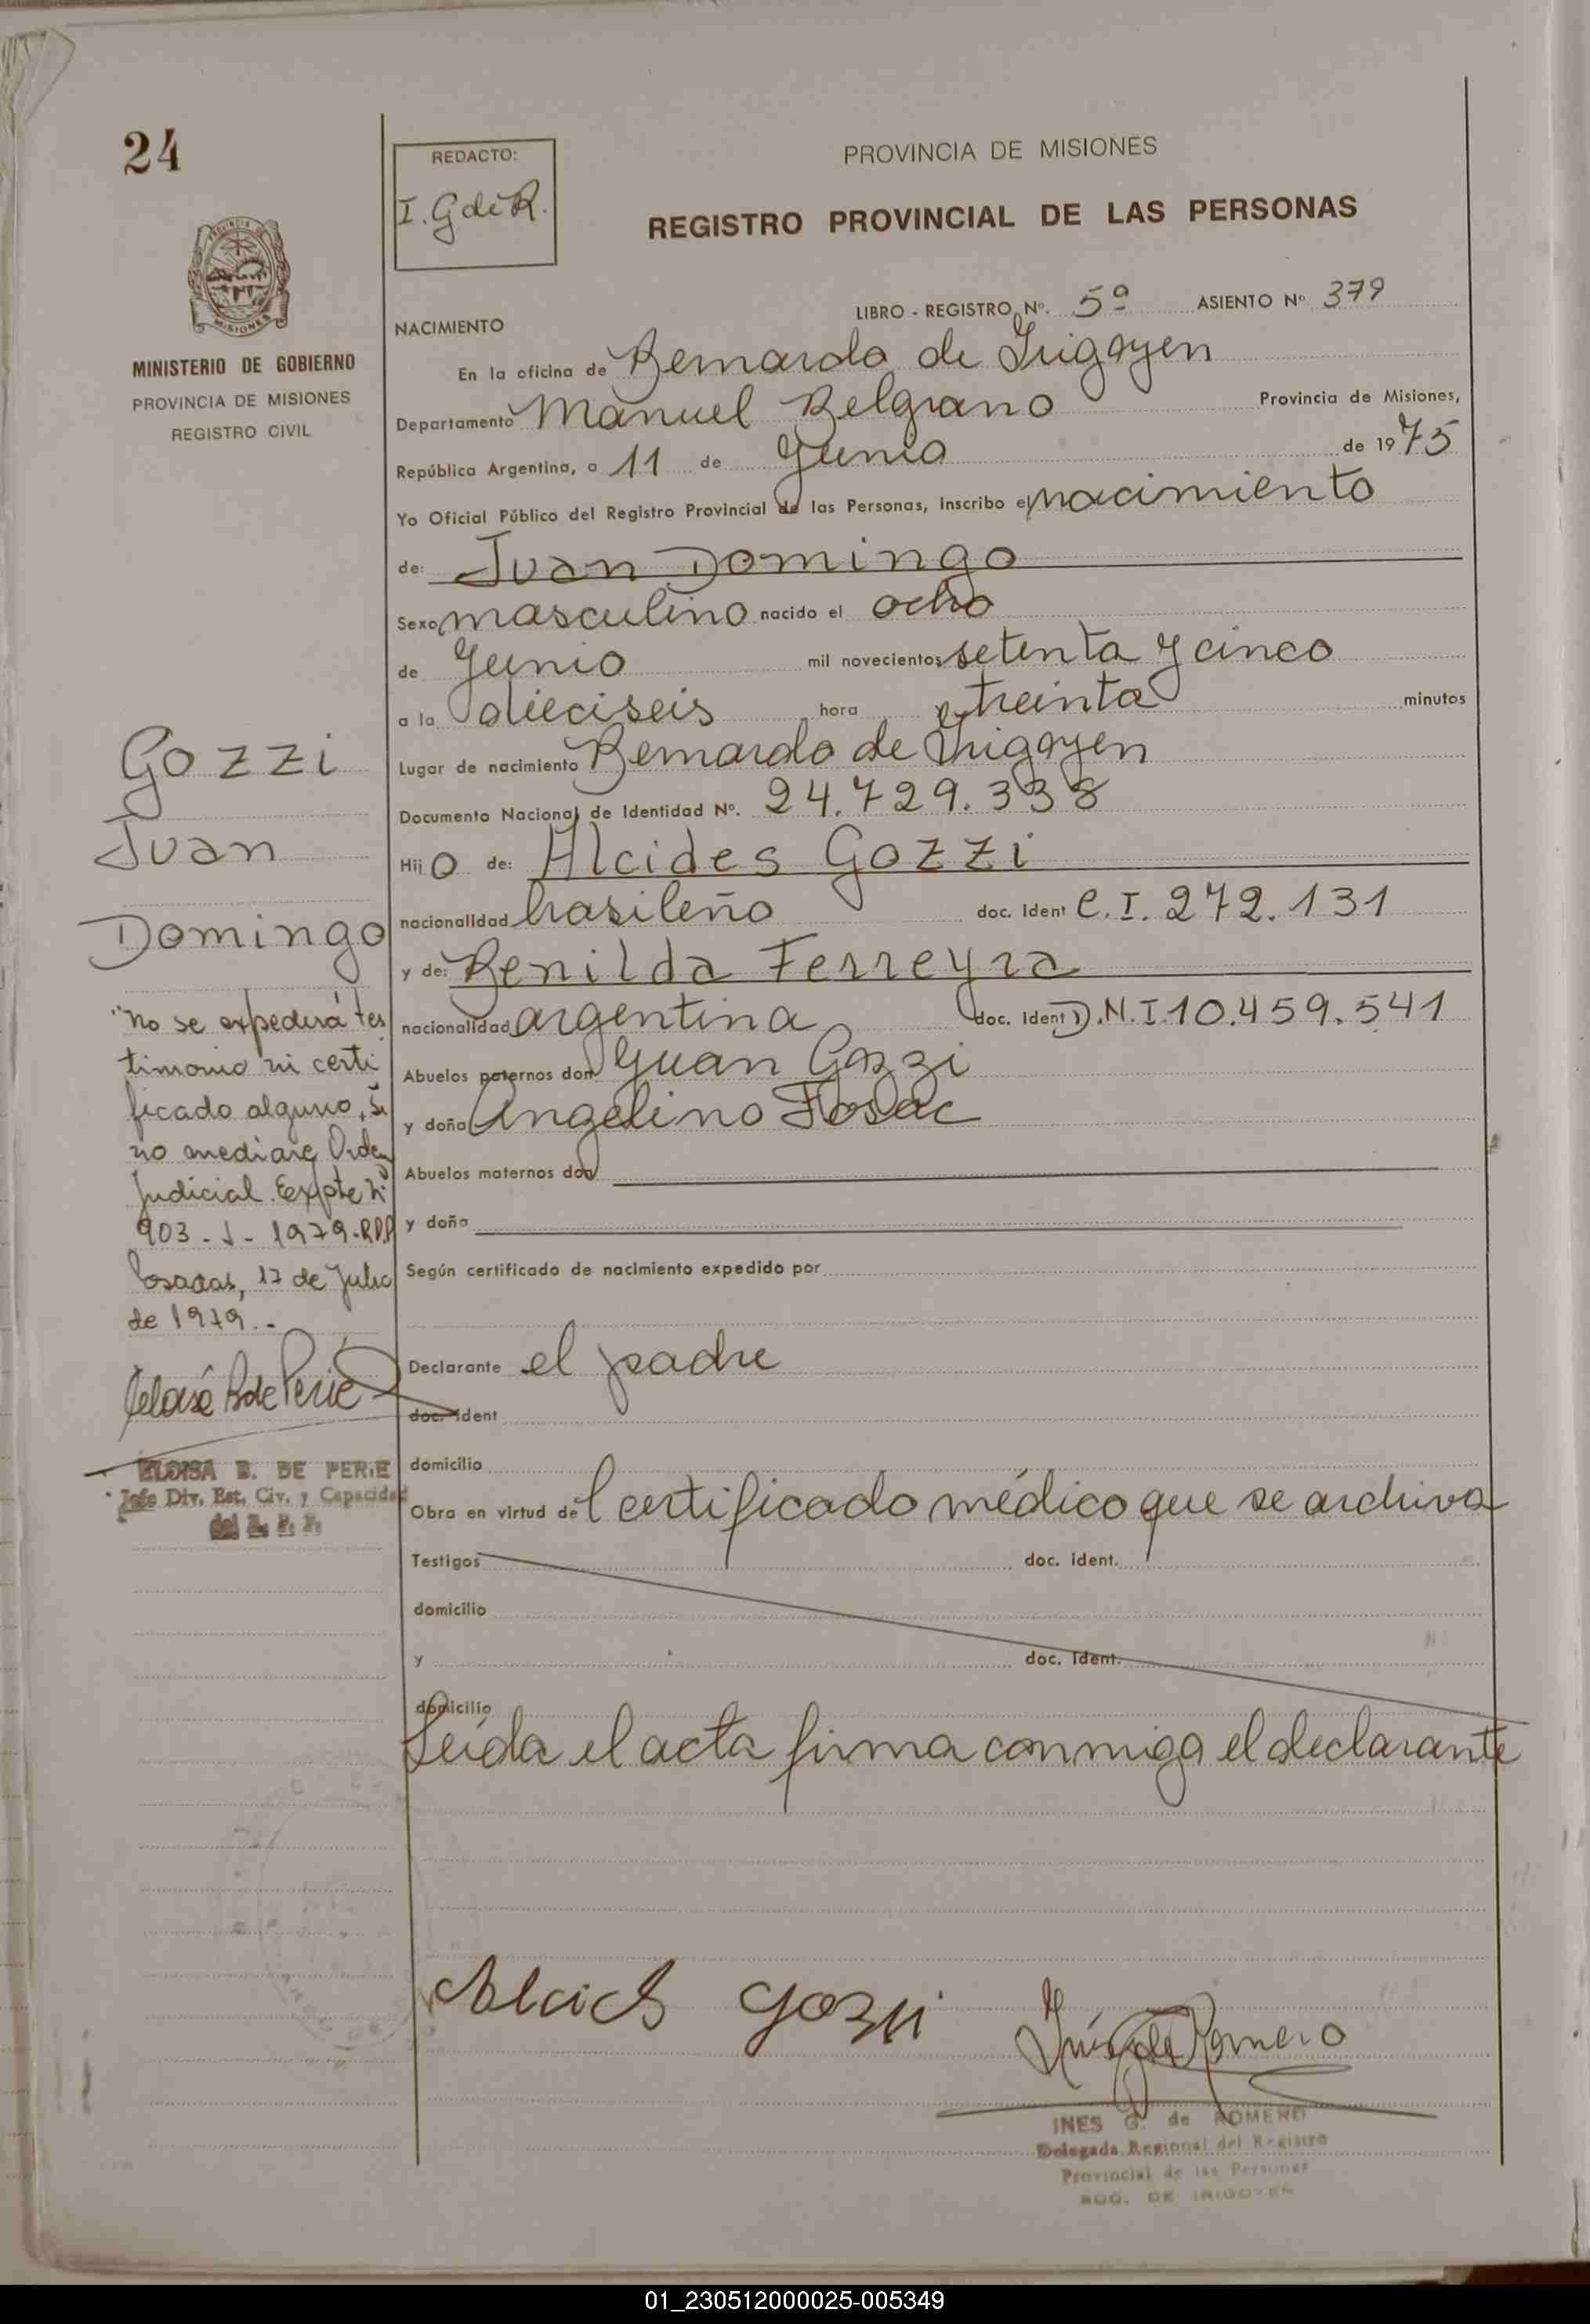 24
REDACTO:
I. G de R.
PROVINCIA DE MISIONES
REGISTRO PROVINCIAL DE LAS PERSONAS
MINISTERIO DE GOBIERNO
PROVINCIA DE MISIONES
REGISTRO CIVIL
LIBRO - REGISTRO Nº. 5º ASIENTO Nº 379
NACIMIENTO
En la oficina de Bernardo de Irigoyen
Departamento Manuel Belgrano Provincia de Misiones,
República Argentina, a 11 de Junio de 1975
Yo Oficial Público del Registro Provincial de las Personas, inscribo el nacimiento
de: Juan Domingo
Sexo masculino nacido el ocho
de Junio mil novecientos setenta y cinco
a la dieciseis hora y treinta minutos
Lugar de nacimiento Bernardo de Irigoyen
Documento Nacional de Identidad Nº. 24.729.338
Hijo de: Alcides Gozzi
nacionalidad brasileño doc. ident C.I. 272.131
y de: Benilda Ferreyra
nacionalidad argentina doc. ident D.N.I. 10.459.541
Abuelos paternos don Juan Gozzi
y doña Angelino
Abuelos maternos don
y doña
Según certificado de nacimiento expedido por
Declarante el padre
doc. ident
domicilio
Obra en virtud del certificado médico que se archiva
Testigos doc. ident.
domicilio
y doc. ident.
domicilio
Leída el acta firma conmigo el declarante
Gozzi
Juan
Domingo
"No se expedirá tes
timonio ni certi
ficado alguno, si
no mediare Orden
Judicial. Expte Nº
903 - J - 1979 - RPP
Posadas, 17 de Julio
de 1979.-
ELOISA B. DE PERIE
Jefe Div. Est. Civ. y Capacidad
del R. P. P.
Alcides Gozzi
Inés G de Romero
INES G. de ROMERO
Delegada Regional del Registro
Provincial de las Personas
BDO. DE IRIGOYEN
01_230512000025-005349